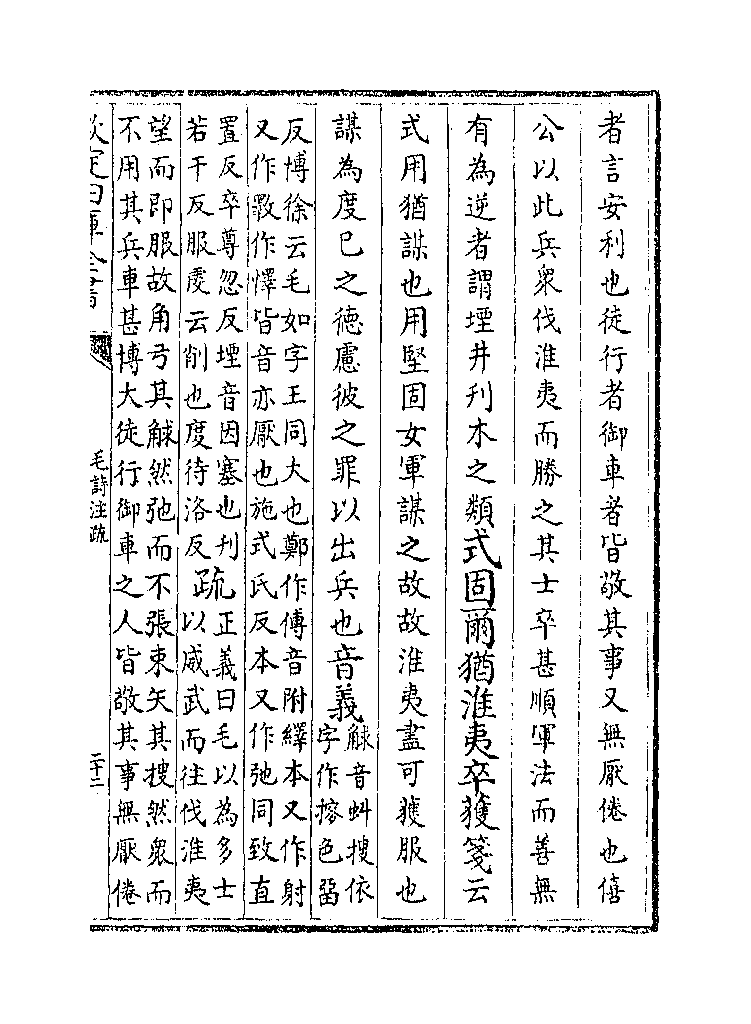 者言安利也徒行者御車者皆敬其事又無厭倦也僖
公以此兵衆伐淮夷而勝之其士卒甚順軍法而善無
有為逆者謂堙井刋木之類式固爾猶淮夷卒獲箋云
式用猶謀也用堅固女軍謀之故故淮夷盡可獲服也
謀為度已之德慮彼之罪以出兵也音義觩音虯搜依
字作摉色留
反博徐云毛如字王同大也鄭作傅音附繹本又作射
又作斁作懌皆音亦厭也施式氏反本又作弛同致直
置反卒尊忽反堙音因塞也刋
若干反服虔云削也度待洛反疏正義曰毛以為多士
以威武而往伐淮夷
望而即服故角弓其觩然弛而不張束矢其搜然衆而
不用其兵車甚博大徒行御車之人皆敬其事無厭倦
欽定四庫全書
毛詩注疏
二十二